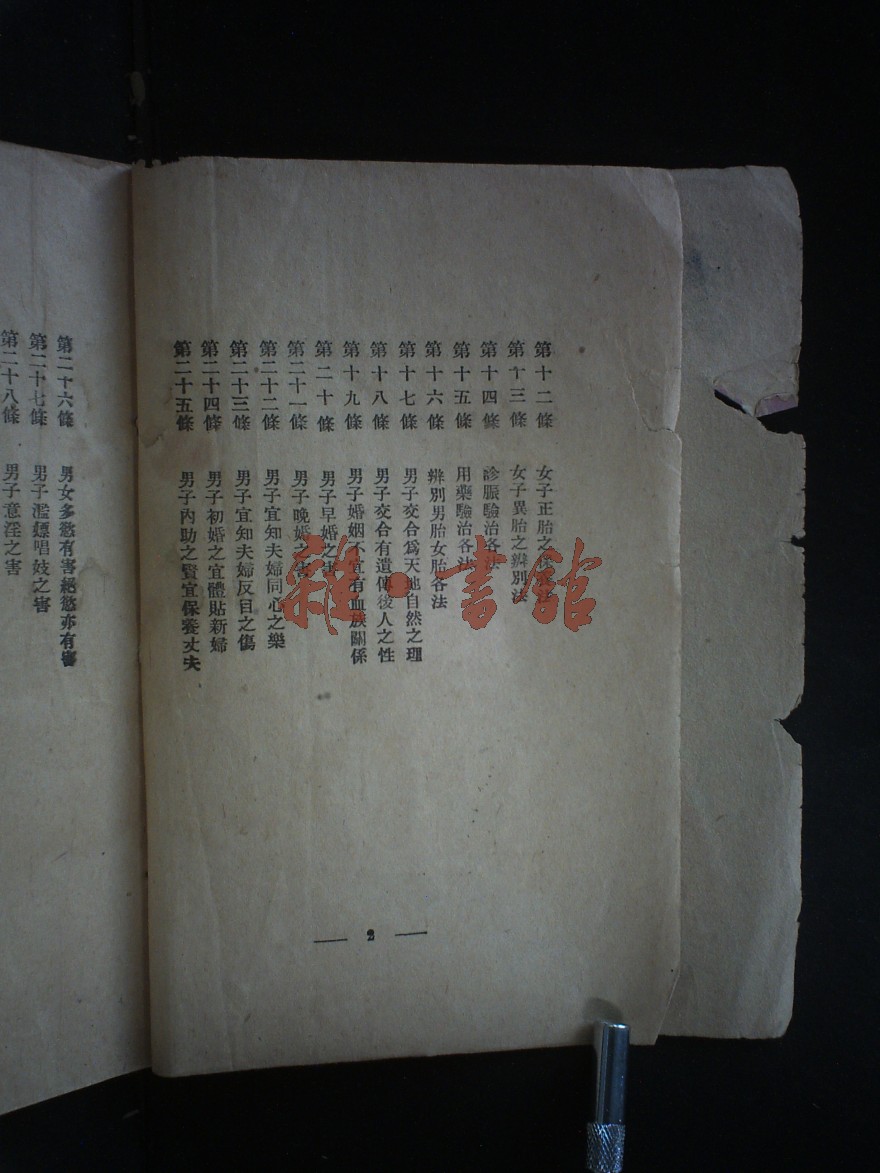 第十二條 女子正胎之保
第十三條 女子異胎之辨別法
第十四條 診脈驗治各法
第十五條 用藥驗治各法
第十六條 辨別男胎女胎各法
第十七條 男子交合爲天地自然之理
第十八條 男子交合有遺傳後人之性
第十九條 男子婚姻不宜有血族關係
第二十條 男子早婚之害
第二十一條 男子晚婚之害
第二十二條 男子宜知夫婦同心之樂
第二十三條 男子宜知夫婦反目之傷
第二十四條 男子初婚之宜體貼新婦
第二十五條 男子內助之賢宜保養丈夫
2
第二十六條 男女多慾有害絕慾亦有害
第二十七條 男子濫嫖唱妓之害
第二十八條 男子意淫之害
雜·書館